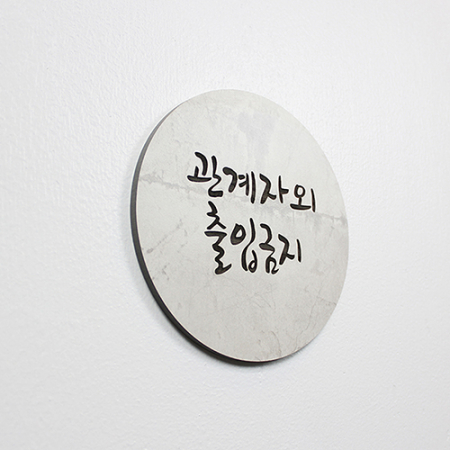 관계자외
출입금지